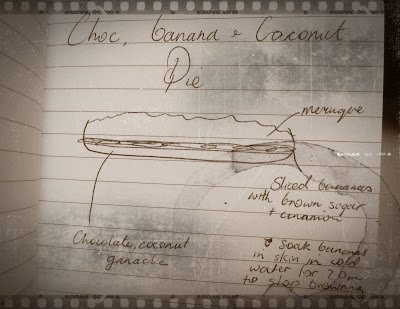 Choc, banana & Coconut
Pie
merugue
Sliced bananas
with brown sugar
+ cinnamon
Chocolate, coconut
ganache
Soak bananas
in skin in cold
water for 20m
to stop browning